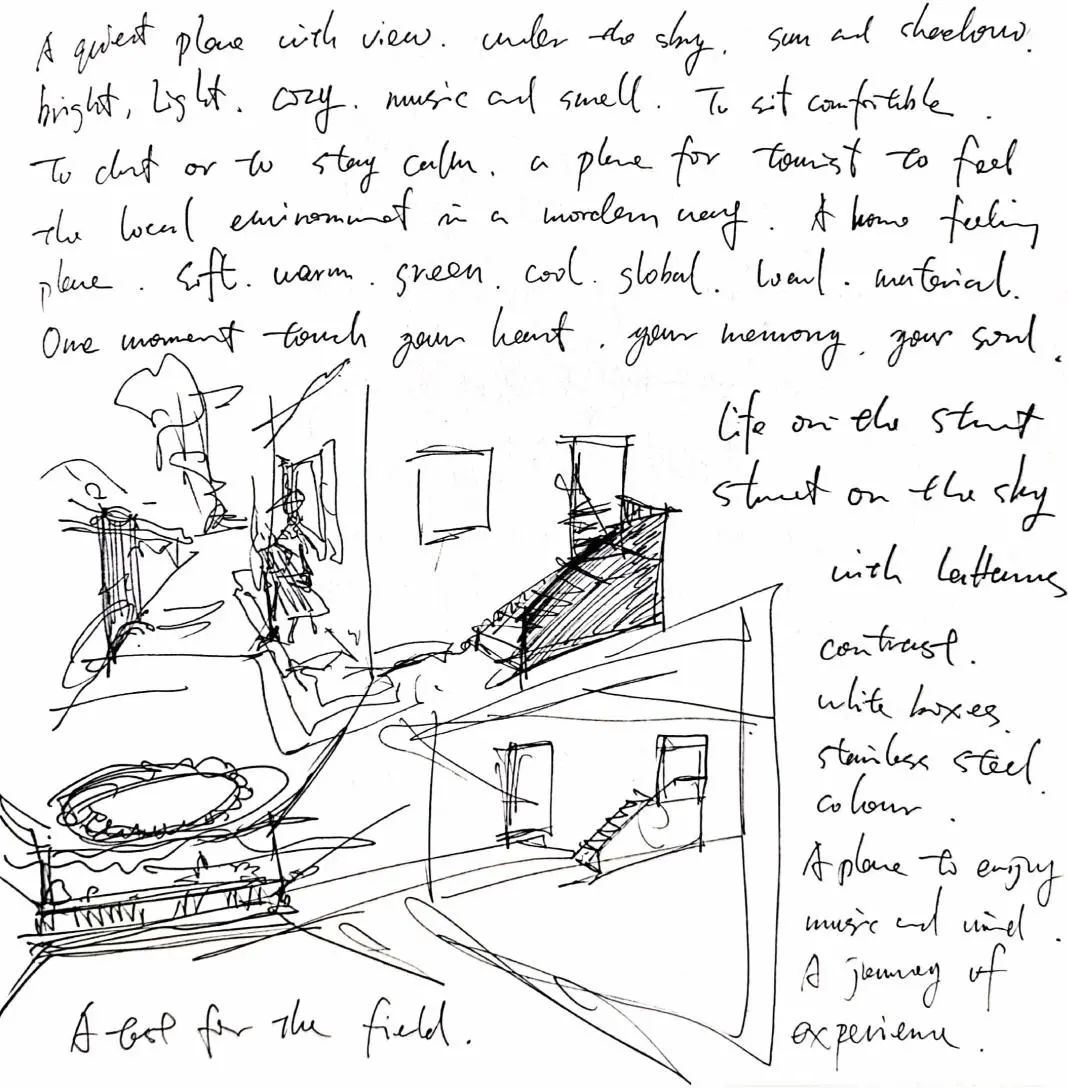 A quiet place with view. under the sky. sun and shadow.
bright, light. cozy. music and smell. To sit comfortible.
To chat or to stay calm. a place for tourist to feel
the local environment in a mordern way. A home feeling
place. soft. warm. green. cool. global. local. material.
One moment touch your heart. your memory. your soul.
life on the street
street on the sky
with
contrast.
white boxes
stainless steel
colour.
A place to enjoy
music and wind.
A journey of
experience.
A test for the field.